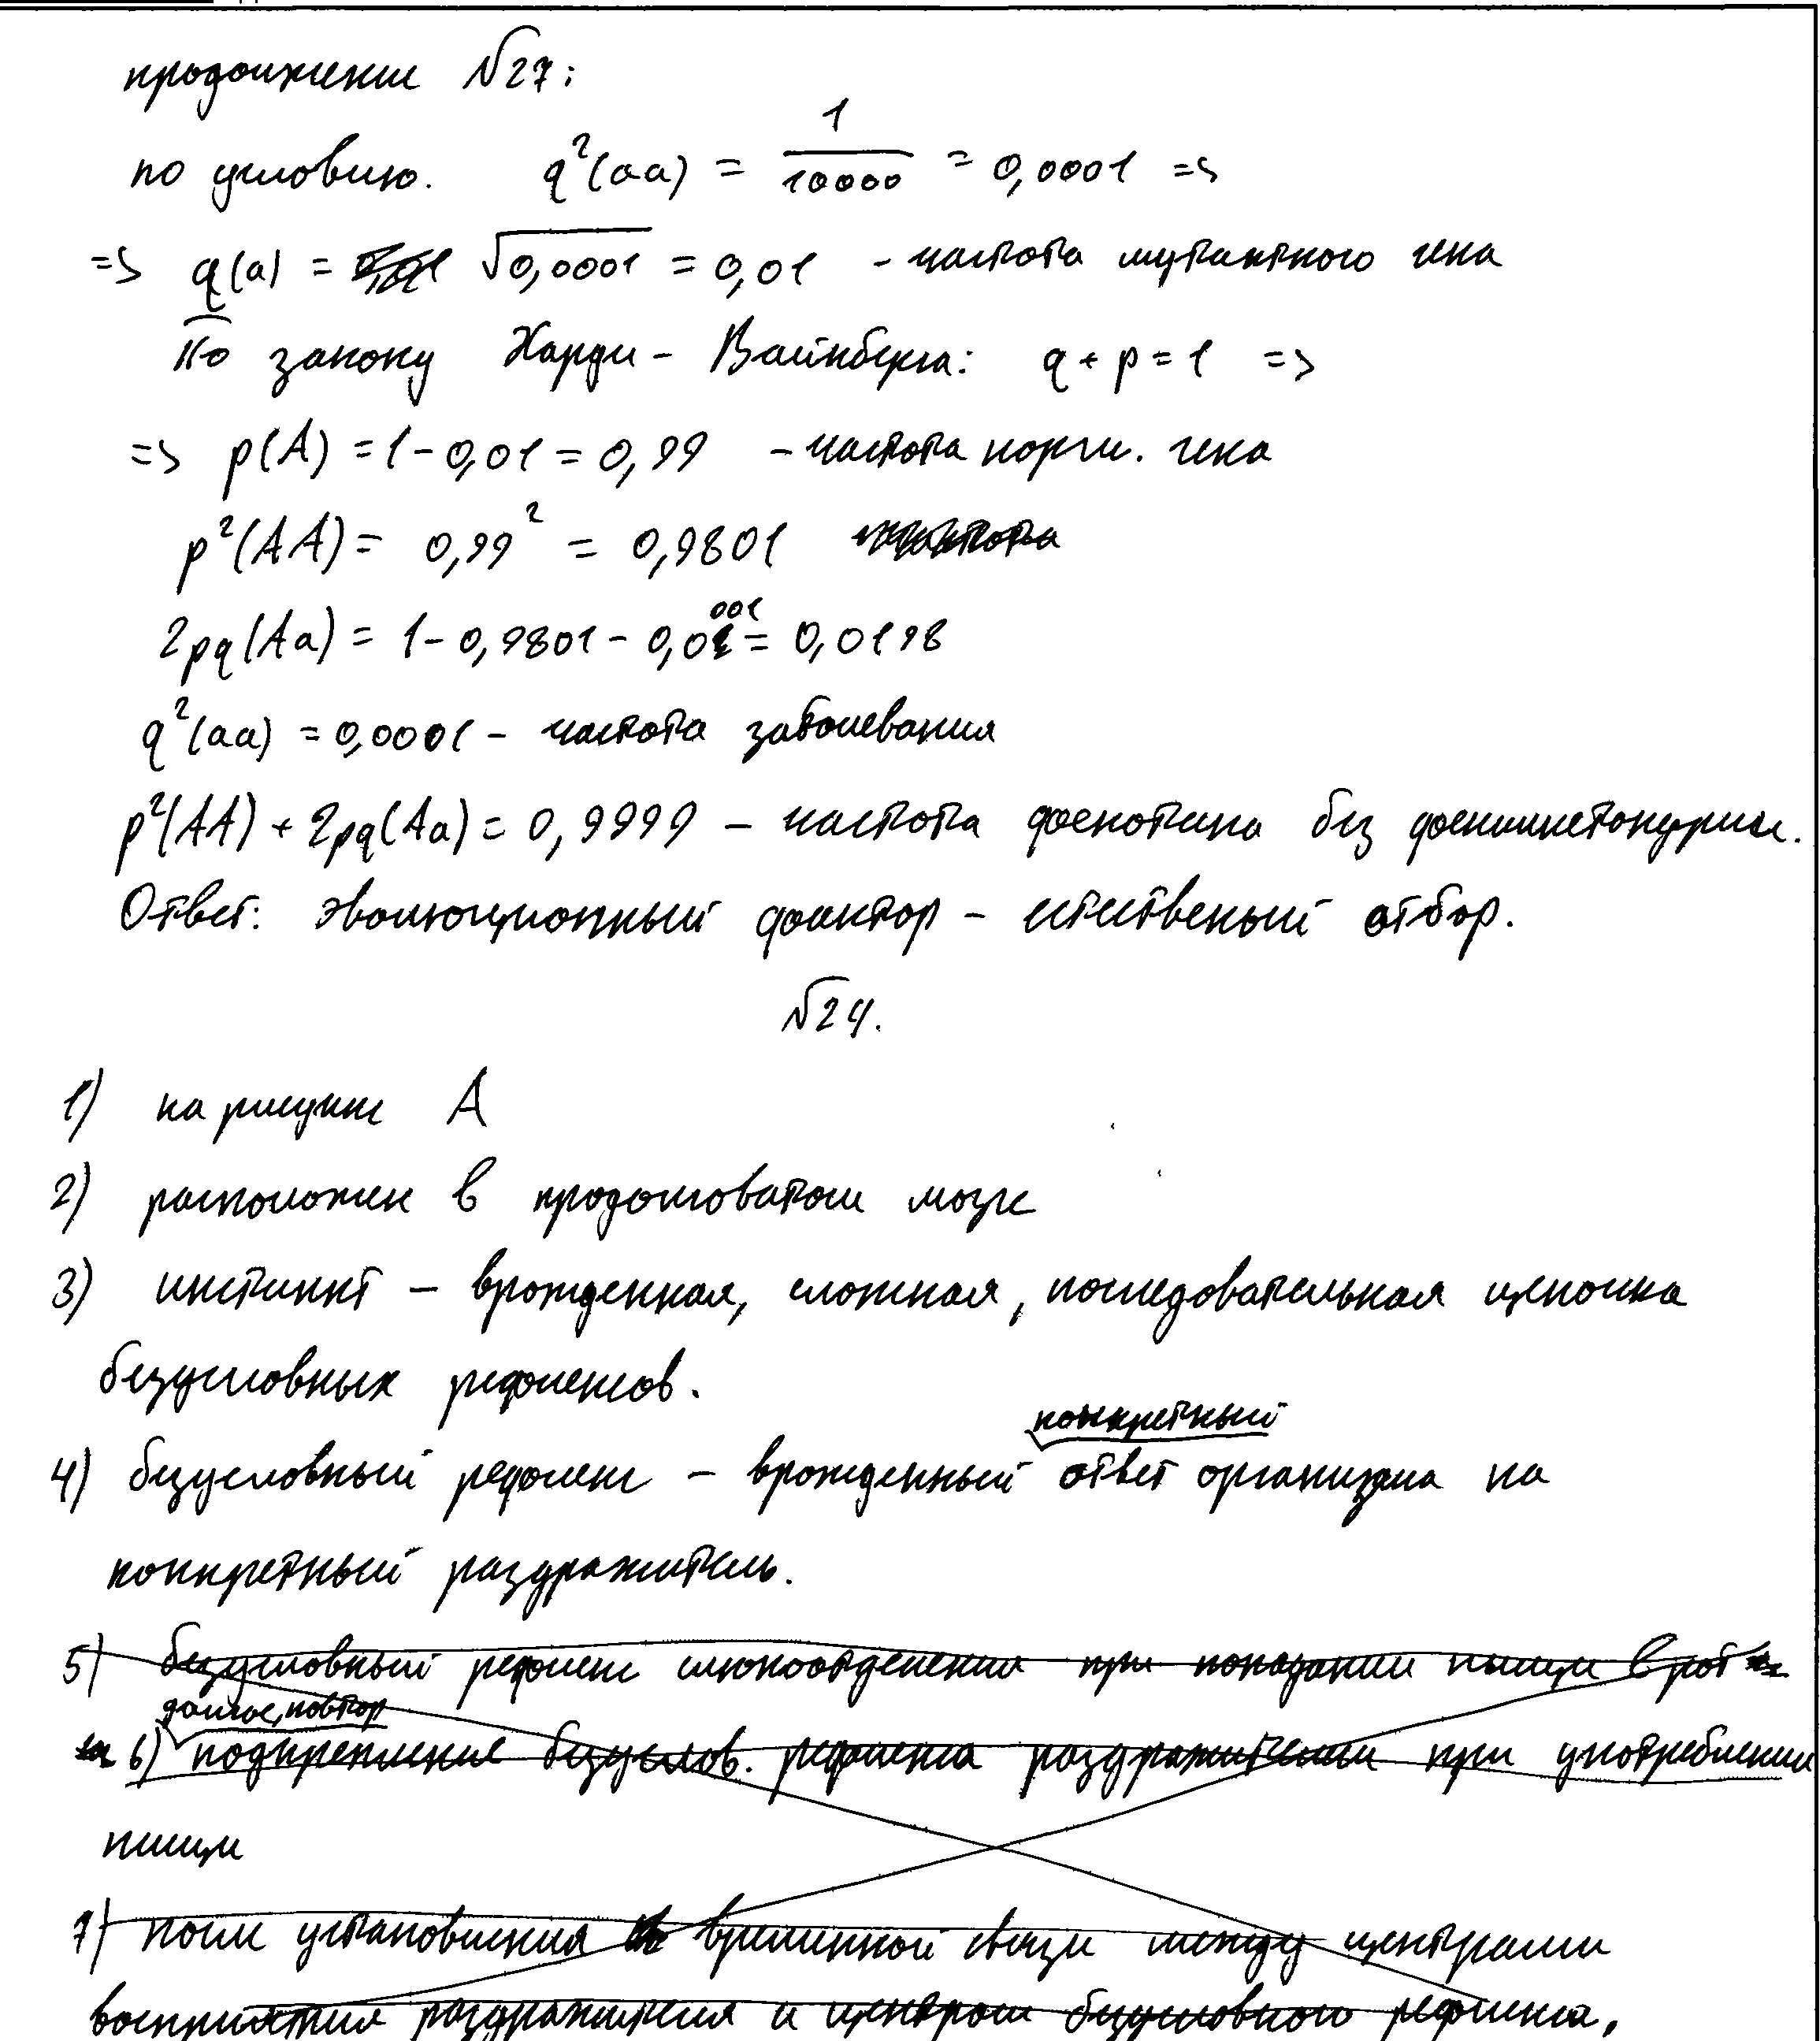 продолжение №27:
по условию. q²(aa) = 1/10000 = 0,0001 =>
=> q(a) = 0,01 √0,0001 = 0,01 - частота мутантного гена
По закону Харди - Вайнберга: q + p = 1 =>
=> p(A) = 1 - 0,01 = 0,99 - частота норм. гена
p²(AA) = 0,99² = 0,9801 частота
2pq(Aa) = 1 - 0,9801 - 0,0001 = 0,0198
q²(aa) = 0,0001 - частота заболевания
p²(AA) + 2pq(Aa) = 0,9999 - частота фенотипа без фенилкетонурии.
Ответ: эволюционный фактор - естественый отбор.
№24.
1) на рисунке А
2) расположен в продолговатом мозге
3) инстинкт - врожденная, сложная, последовательная цепочка
безусловных рефлексов.
конкретный
4) безусловный рефлекс - врожденный ответ организма на
конкретный раздражитель.
5) безусловный рефлекс слюноотделения при попадании пищи в рот
далее, повтор
6) подкрепление безуслов. рефлекса раздражителем при употреблении
пищи
7) после установления временной связи между центрами
восприятия раздражителя и центром безусловного рефлекса,